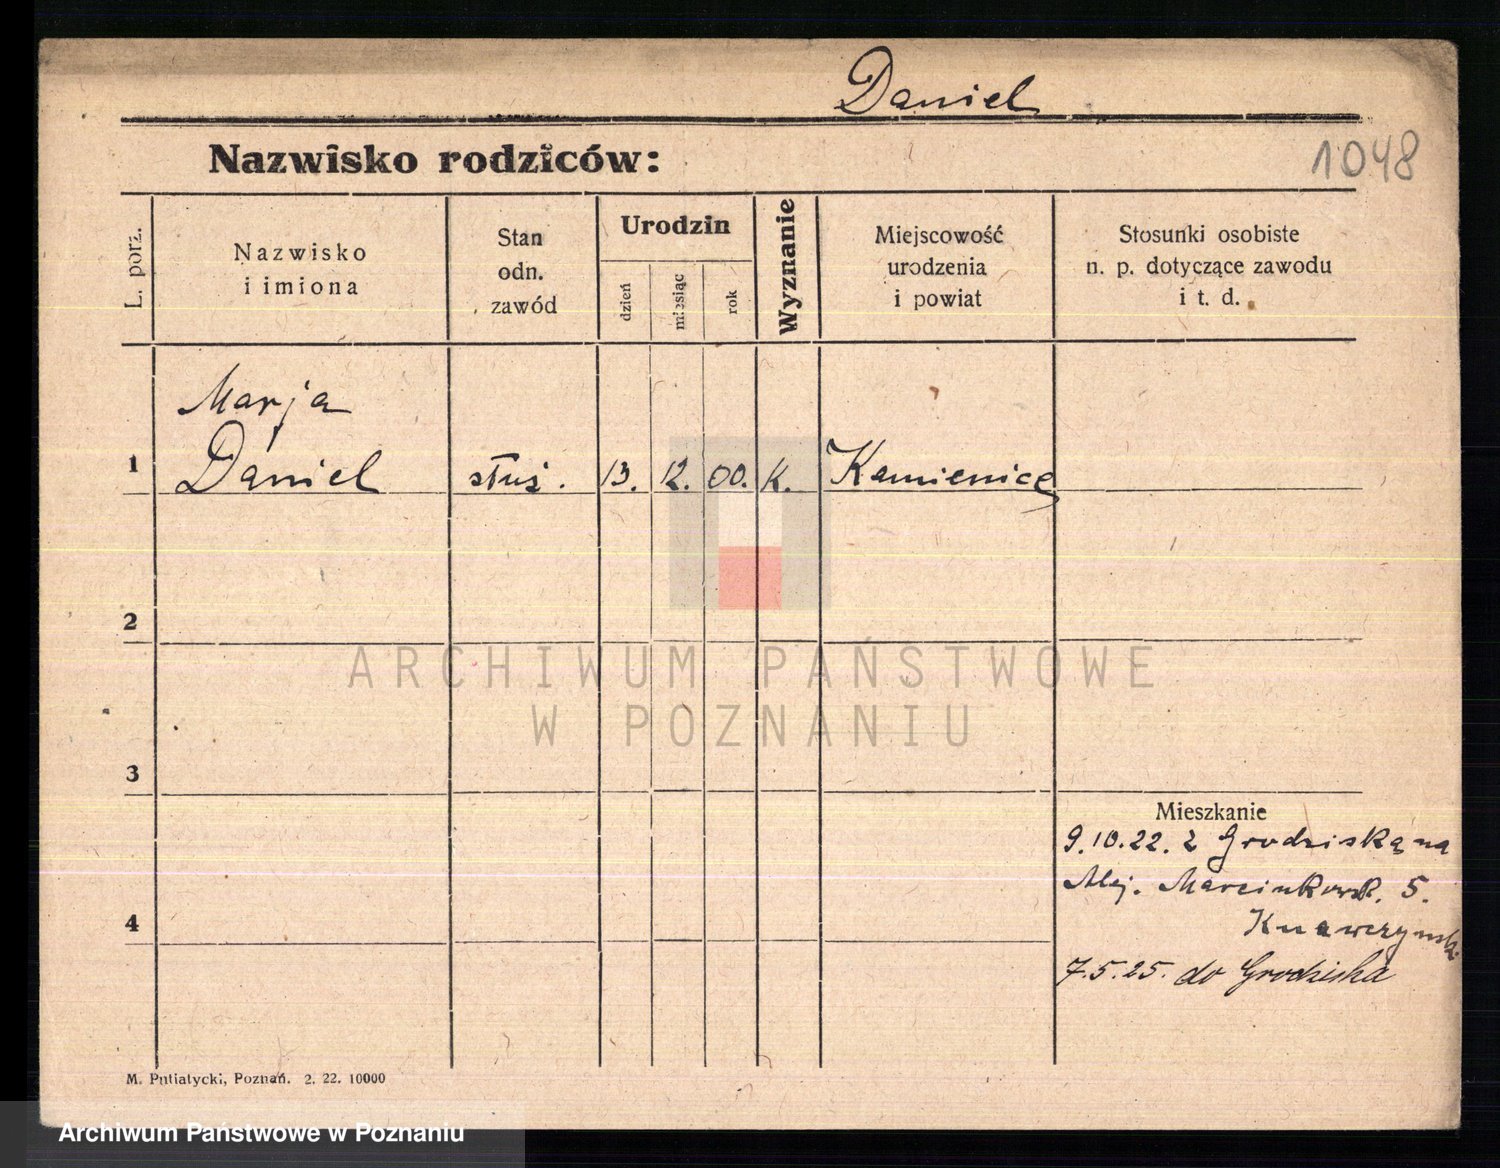 Daniel
1048
Nazwisko rodziców:
L. porz.
Nazwisko
i imiona
Stan
odn.
zawód
Urodzin
dzień
miesiąc
rok
Wyznanie
Miejscowość
urodzenia
i powiat
Stosunki osobiste
n. p. dotyczące zawodu
i t. d.
Marja
1 Daniel służ. 13. 12. 00. K. Kamienice
2
ARCHIWUM PAŃSTWOWE
W POZNANIU
3
Mieszkanie
9.10.22. z Grodziską na
Alej. Marcinkowsk. 5.
4
7.5.25. do Grodziska
M. Putiatycki, Poznań. 2. 22. 10000
Archiwum Państwowe w Poznaniu